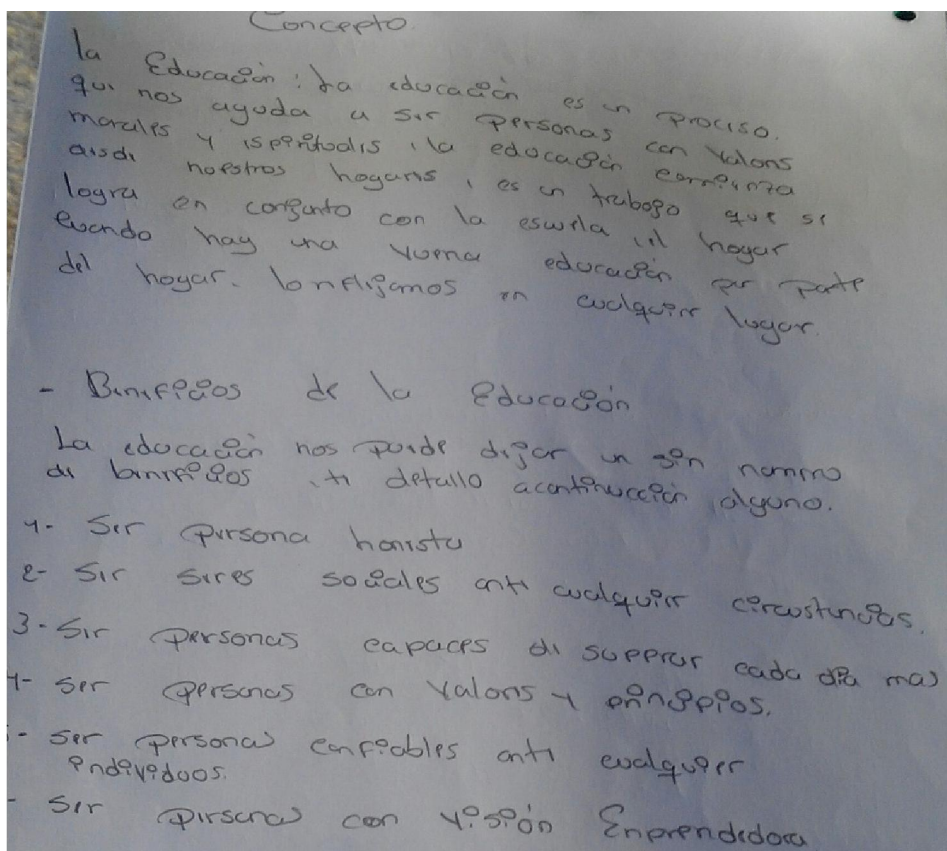 Concepto.
la Educación: La educación es un proceso.
que nos ayuda a ser personas con valores
morales y ispirituales, la educación comienza
desde nuestros hogares, es un trabajo que se
logra en conjunto con la escuela, el hogar
cuando hay una vuena educación por parte
del hogar. lo reflejamos en cualquier lugar.
- Beneficios de la Educación
La educación nos puede dejar un sin numero
de beneficios, te detallo acontinucción, alguno.
1- Ser persona honesta
2- Ser seres sociales ante cualquier circustancias.
3- Ser personas capaces de superar cada día mas
4- Ser personas con valores y principios.
- Ser personas confiables ante cualquier
individuos.
- Ser personas con visión Enprendedora